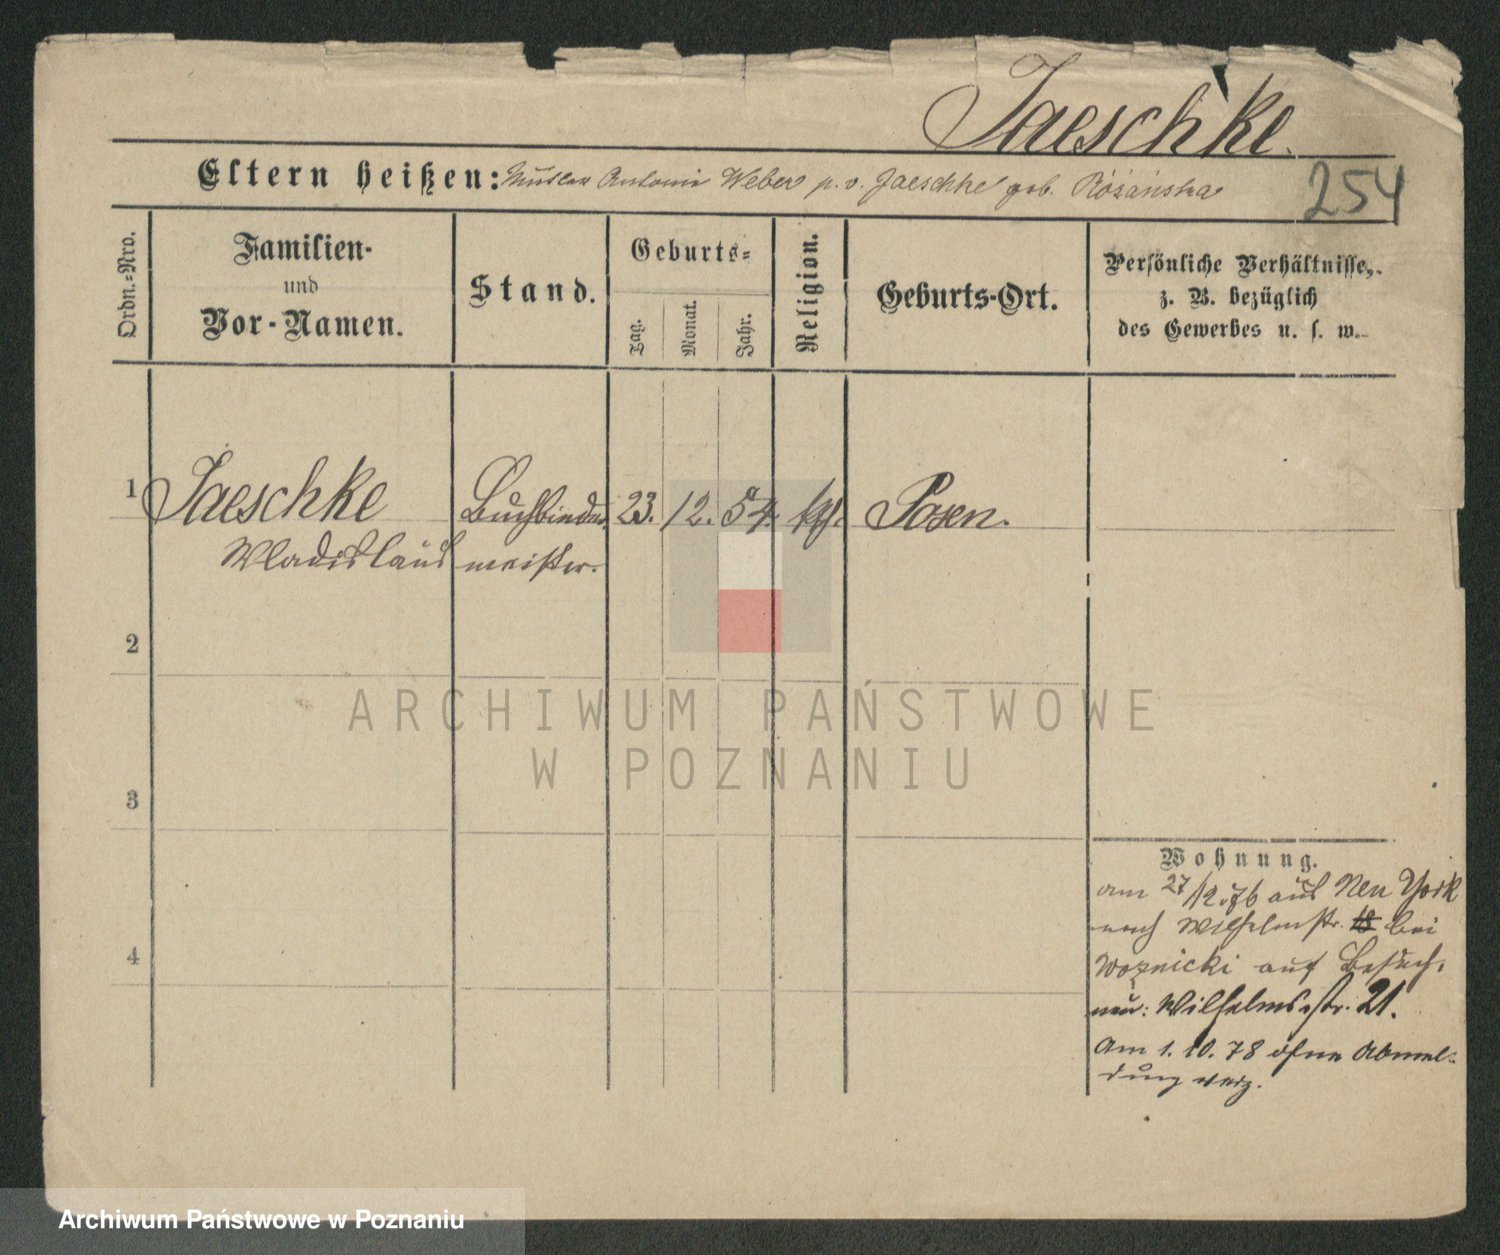 Jaeschke.
Eltern heißen: Mutter Antonie Weber p. v. Jaeschke geb. Różańska
254
Ordn.-Nro.
Familien-
und
Vor-Namen.
Stand.
Geburts-
Tag.
Monat.
Jahr.
Religion.
Geburts-Ort.
Persönliche Verhältnisse,
z. B. bezüglich
des Gewerbes u. s. w.
1 Jaeschke Buchbinder 23. 12. 54. kth. Posen.
Wladislaus meister.
2
3
4
Wohnung.
am 27/12.76 aus New York
nach Wilhelmstr. 18 bei
Woznicki auf Besuch.
neu: Wilhelmsstr. 21.
Am 1. 10. 78 ohne Abmel-
dung verz.
ARCHIWUM PAŃSTWOWE
W POZNANIU
Archiwum Państwowe w Poznaniu